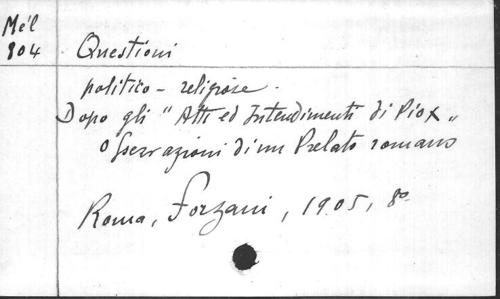 Mél
804
Questioni
politico-religiose.
Dopo gli "Atti ed Intendimenti di Pio X„
Osservazioni di un Prelato romano
Roma, Forzani, 1905, 8º